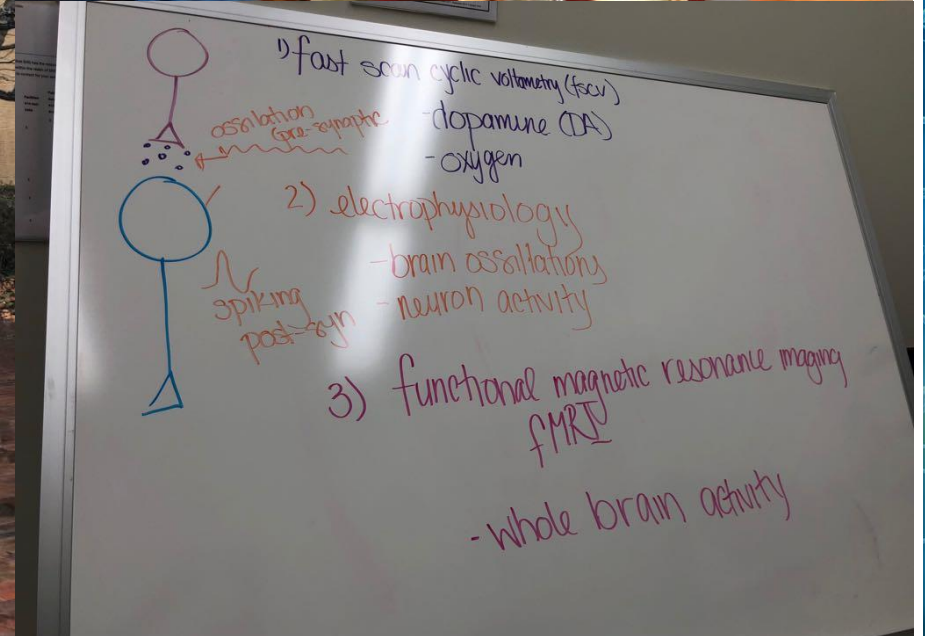 1) fast scan cyclic voltometry (fscv)
- dopamine (DA)
- oxygen
ossilation
(pre-synaptic
2) electrophysiology
- brain ossillations
- neuron activity
spiking
post-syn
3) functional magnetic resonance imaging
fMRI
- whole brain activity